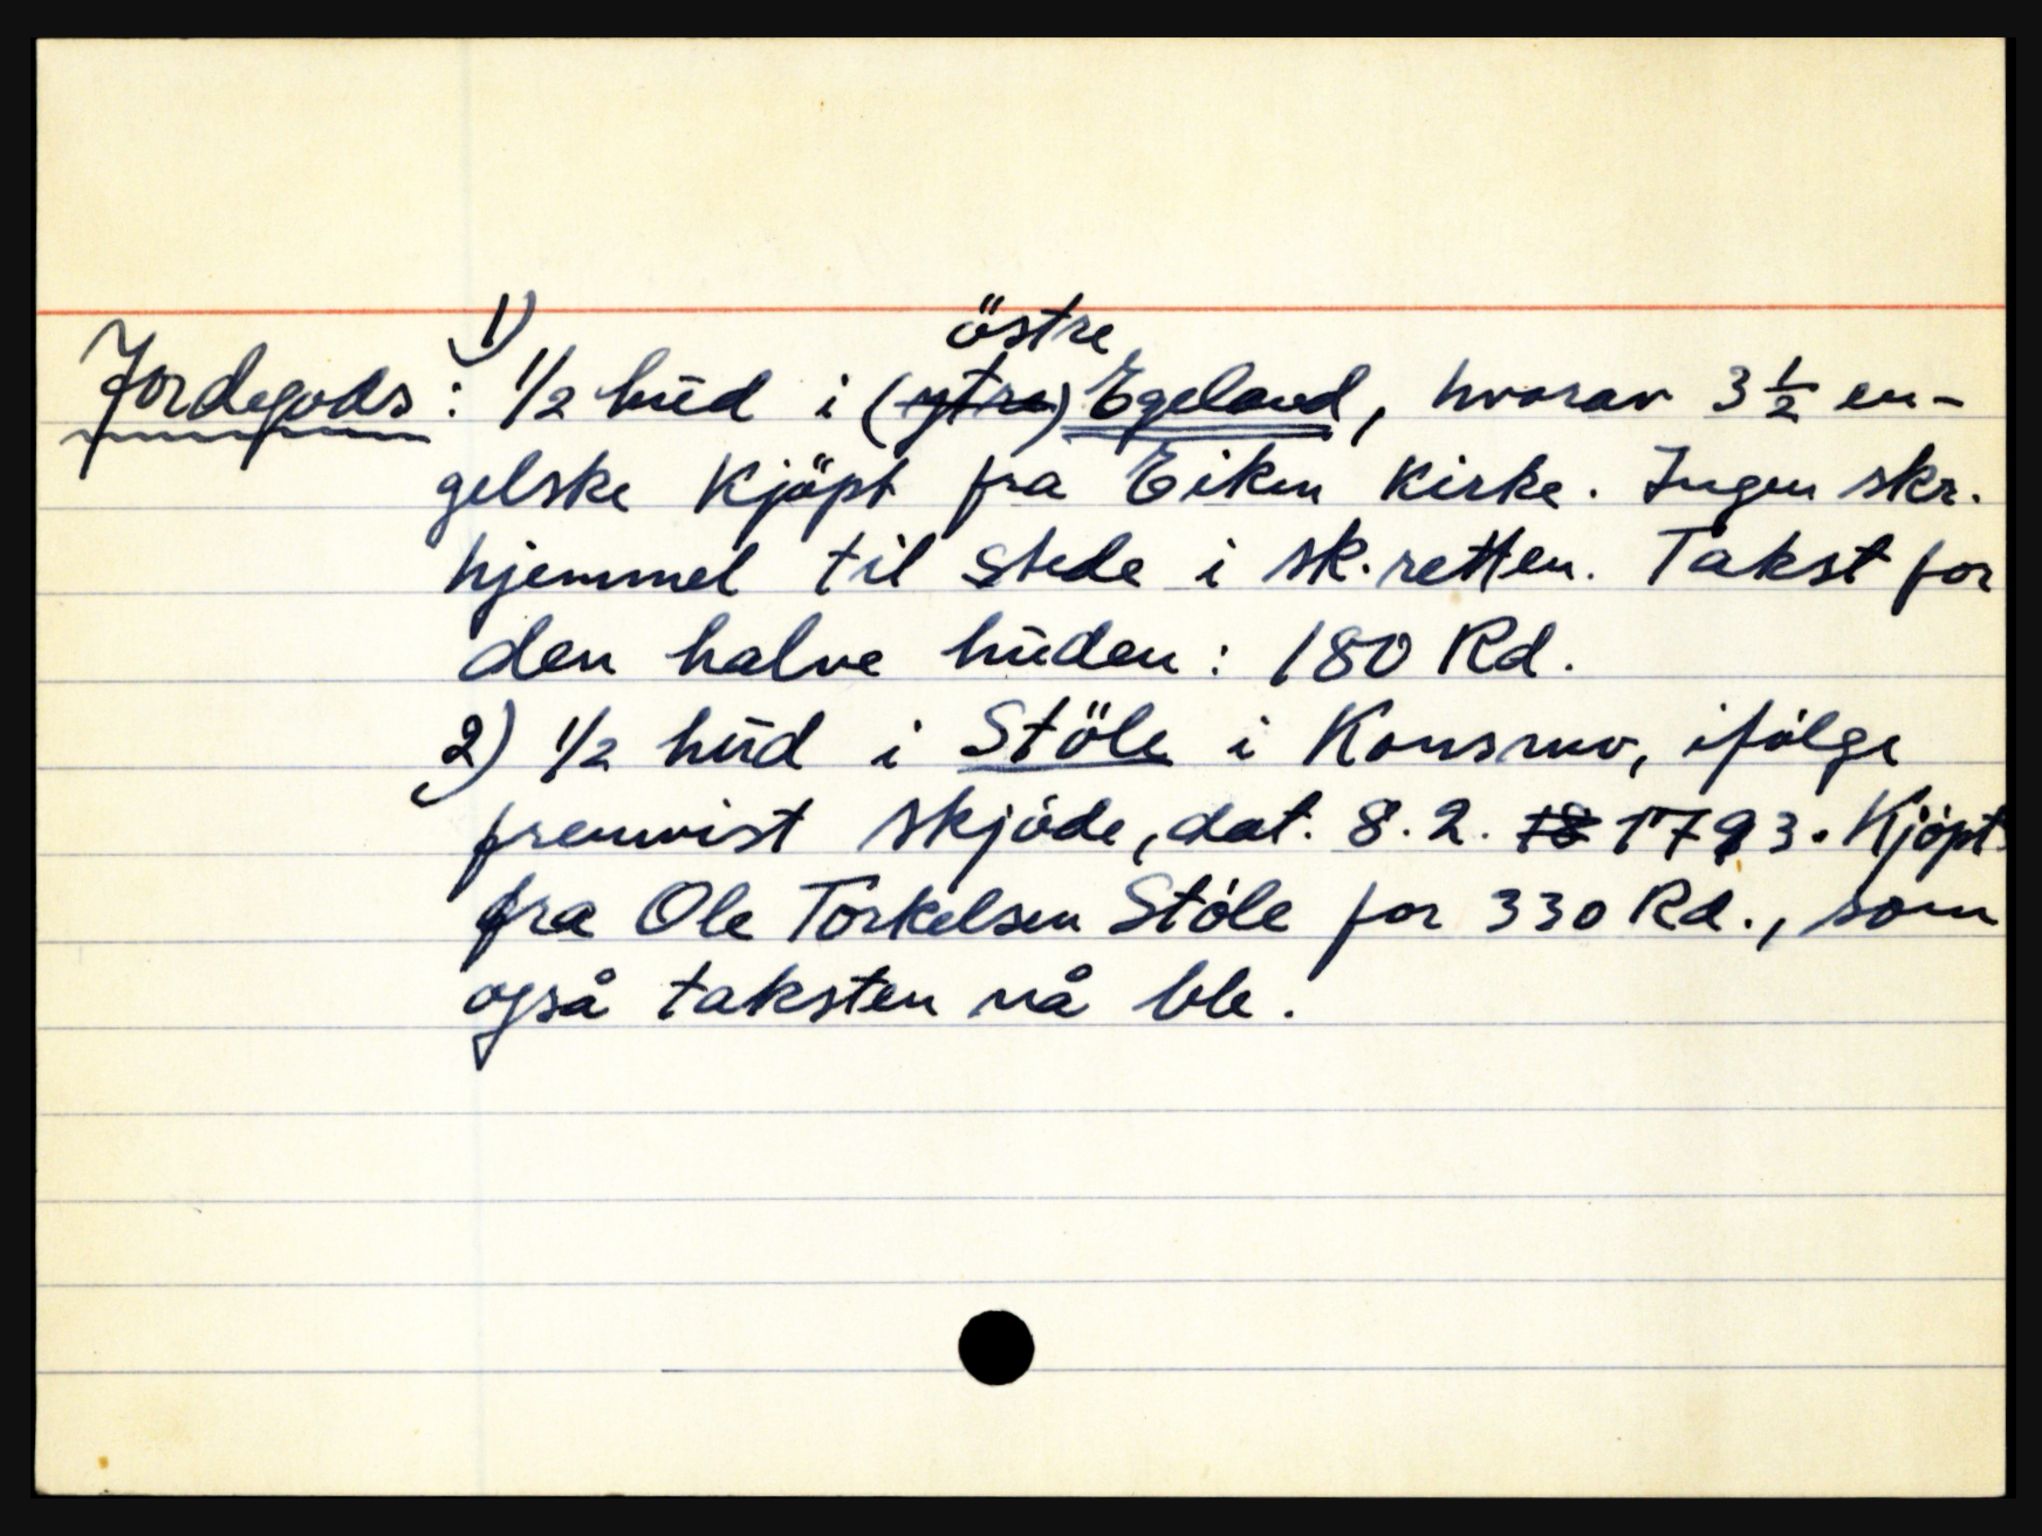 1) östre
Jordegods: 1/2 hud i (ytre) Egeland, hvorav 3 1/2 en-
gelske kjöpt fra Eiken Kirke. Ingen skr.
hjemmel til stede i sk.retten. Takst for
den halve huden: 180 Rd.
2) 1/2 hud i Stöle i Konsmo, ifölge
fremvist skjöde, dat. 8.2. 18 1793. Kjöpt
fra Ole Torkelsen Stöle for 330 Rd., som
også taksten nå ble.